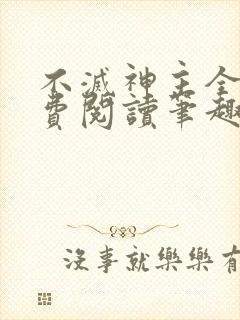 不滅神主全
費閱讀筆趣
沒事就樂樂有